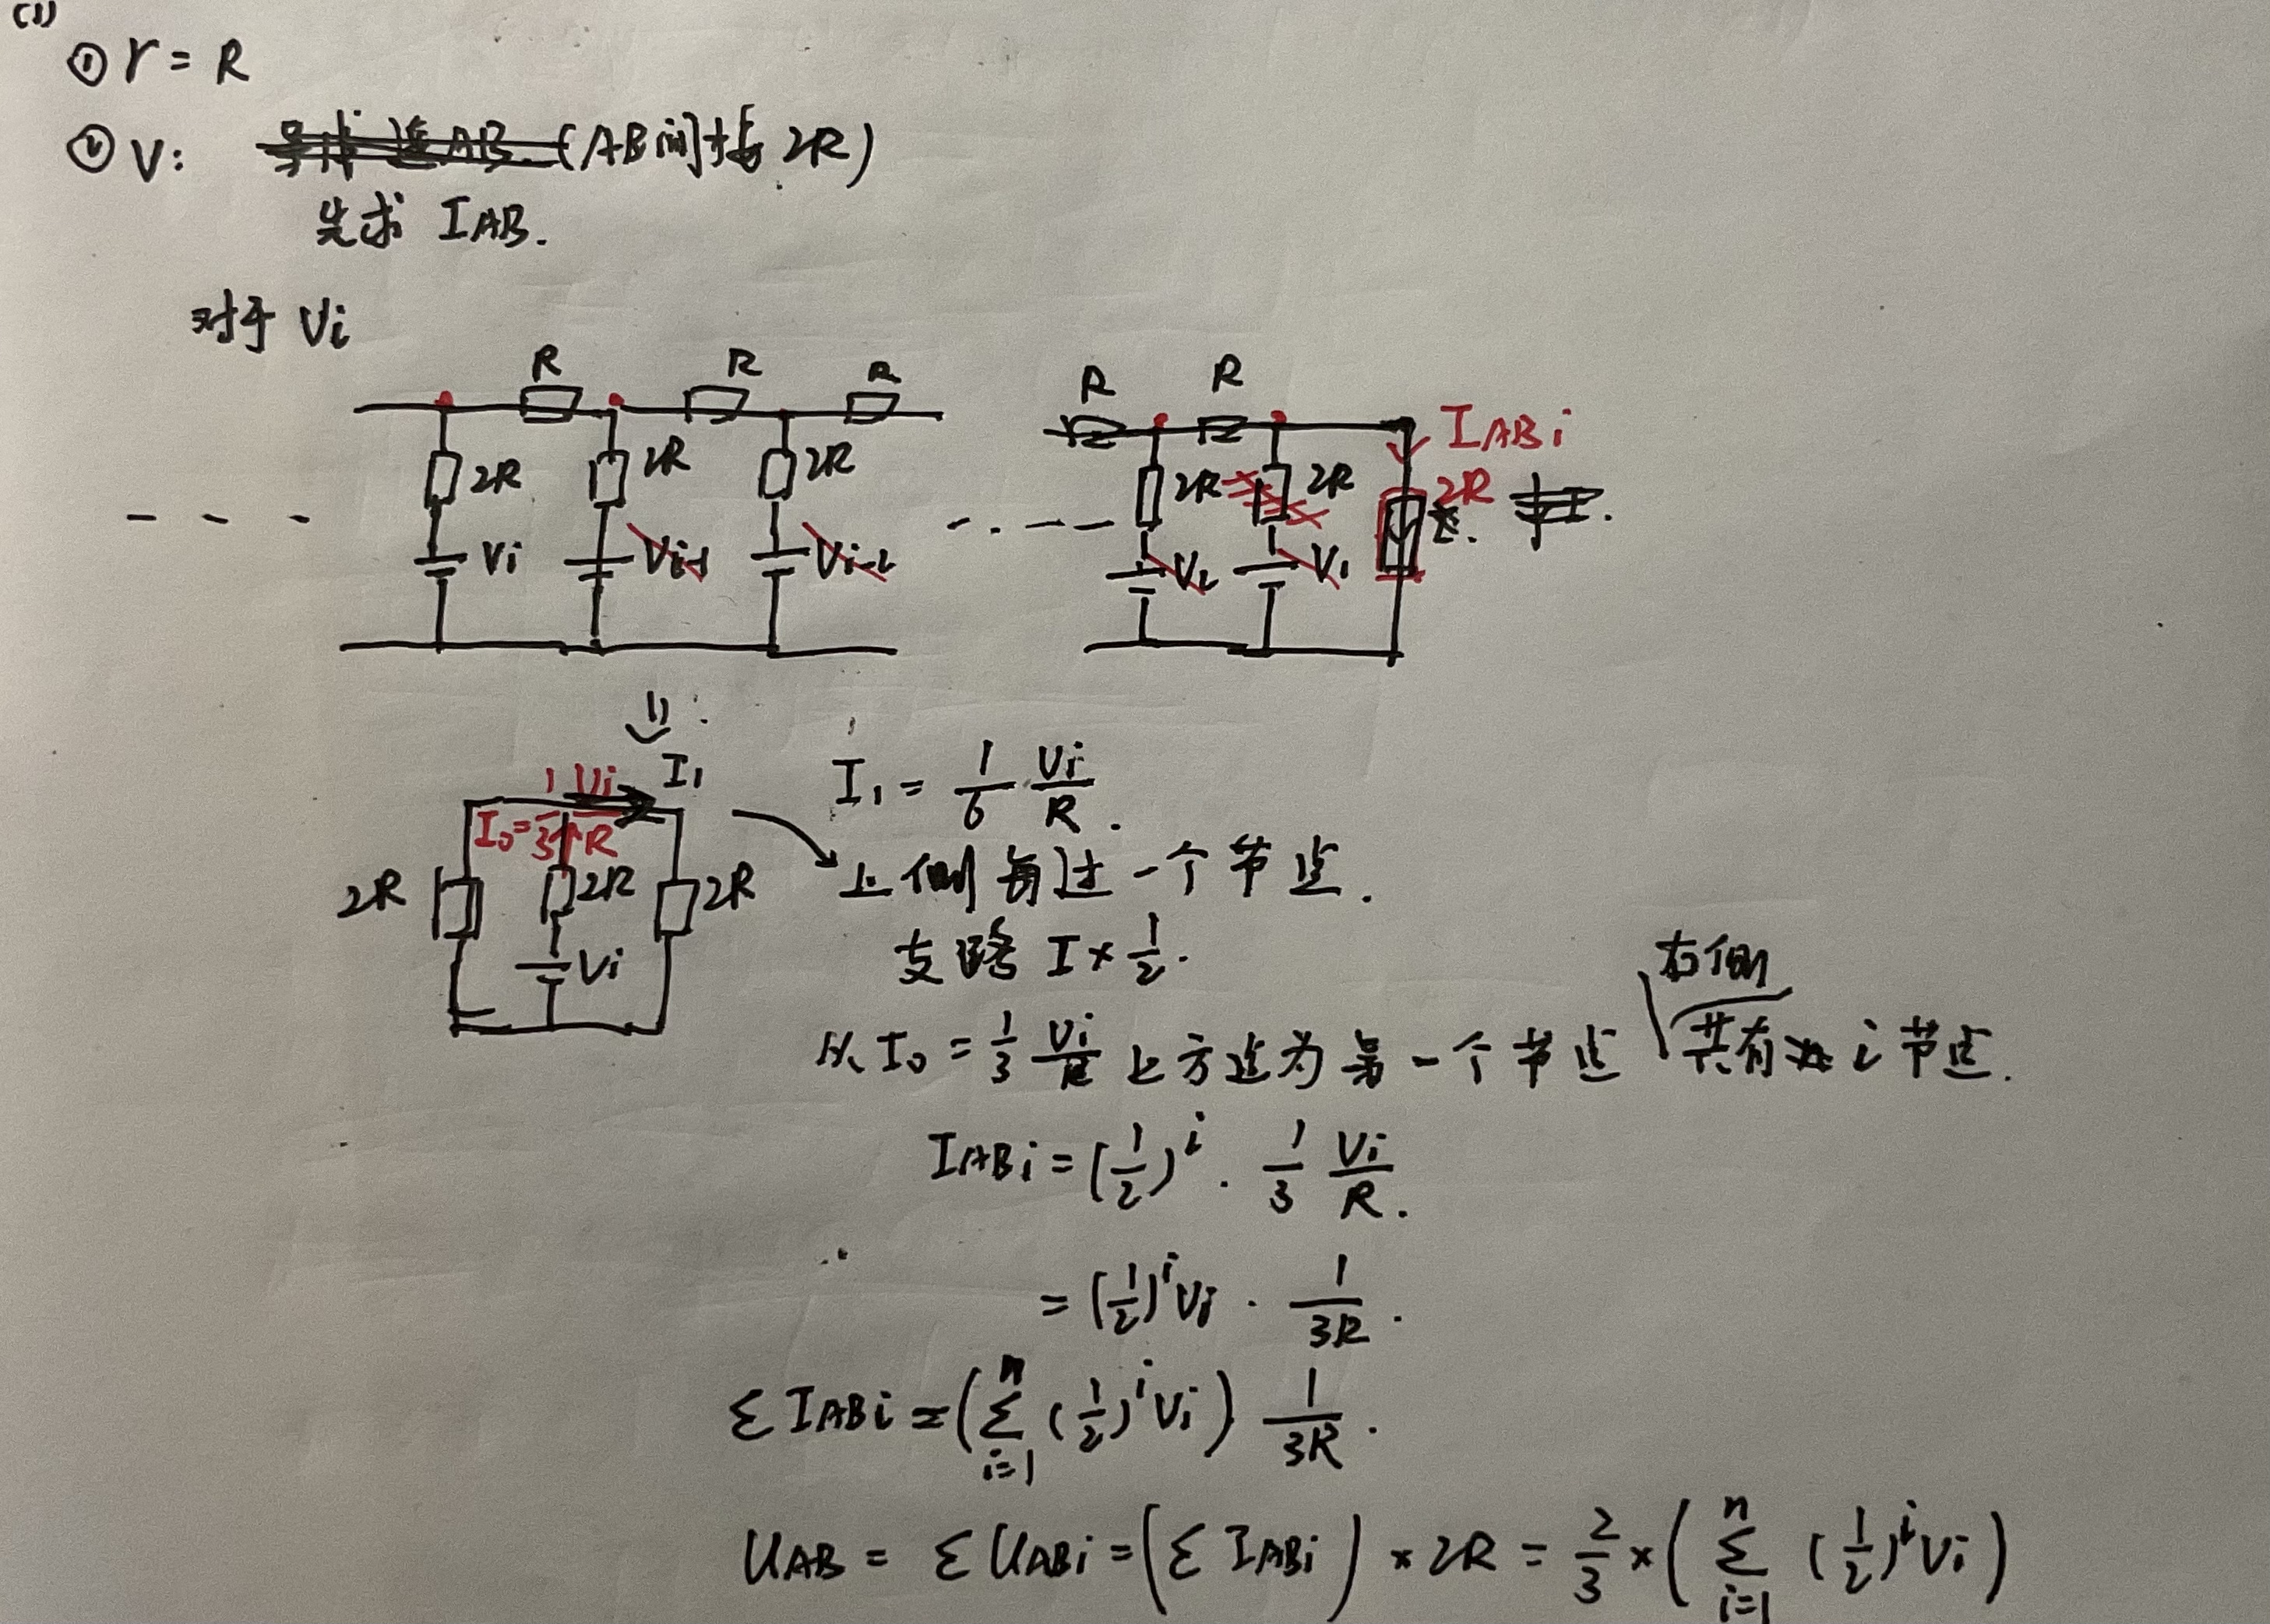 (1)
① r = R
② V: (AB间接 2R)
先求 IAB.
对于 Vi
R R R R R
IABi
2R 2R 2R 2R 2R 2R
Vi Vi-1 Vi-2 V2 V1
I1
I0 = 1/3 Vi/R
2R 2R 2R
Vi
I1 = 1/6 Vi/R.
上侧每过一个节点.
支路 I × 1/2.
右侧
从 I0 = 1/3 Vi/R 上方点为第一个节点 共有 i 节点.
IABi = (1/2)^i · 1/3 Vi/R.
= (1/2)^i Vi · 1/3R.
Σ IABi = (Σ_{i=1}^{n} (1/2)^i Vi) 1/3R.
UAB = Σ UABi = (Σ IABi) × 2R = 2/3 × (Σ_{i=1}^{n} (1/2)^i Vi)